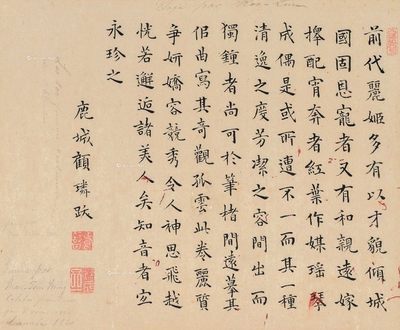 前代麗姬多有以才貌傾城
國固恩寵者又有和親遠嫁
擇配宵奔者紅葉作媒瑤琴
成偶是或所遭不一而其一種
清逸之度芳潔之容間出而
獨鍾者尚可於筆楮間遠摹其
侶曲寫其奇觀孤雲此卷麗質
爭妍嬌容競秀令人神思飛越
恍若邂逅諸美人矣知音者宜
永珍之
鹿城顧璘跋